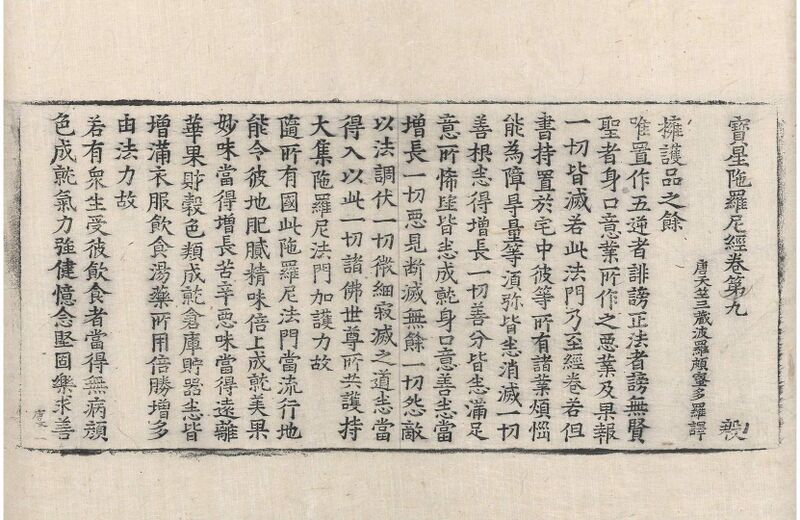 寶星陁羅尼經卷第九
唐天竺三藏波羅頗蜜多羅譯
擁護品之餘
唯置作五逆者誹謗正法者謗無賢
聖者身口意業所作之惡業及果報
一切皆滅若此法門乃至經卷若但
書持置於宅中彼等所有諸業煩惱
能為障㝵量等湏弥皆悉消滅一切
善根悉得增長一切善分皆悉滿足
意所悕望皆悉成就身口意善悉當
增長一切惡見断滅無餘一切怨敵
以法調伏一切微細寂滅之道悉當
得入以此一切諸佛世尊所共護持
大集陁羅尼法門加護力故
隨所有國此陁羅尼法門當流行地
能令彼地肥膩精味倍上成就美果
妙味當得增長苦辛惡味當得遠離
華果財穀色類成就倉庫貯器悉皆
增滿衣服飲食湯藥所用倍勝增多
由法力故
若有衆生受彼飲食者當得無病顔
色成就氣力強健憶念堅固樂求善